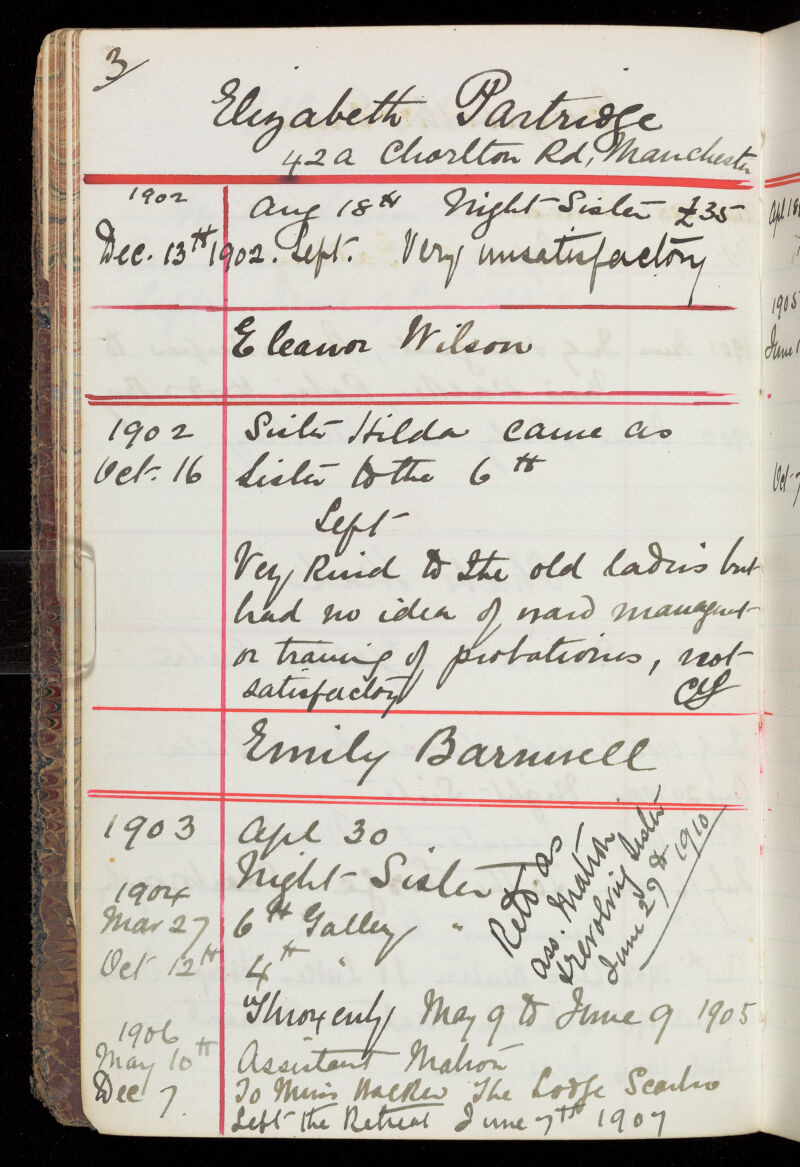 3/
Elizabeth Partridge
42a Chorlton Rd, Manchester
1902 Aug 18th Night Sister £35
Dec. 13th 1902. Left. Very unsatisfactory
Eleanor Wilson
1902 Sister Hilda came as
Oct. 16 Sister to the 6th
Left
Very kind to the old ladies but
had no idea of ward managmt
or training of probationers, not
satisfactory
Emily Barnwell
1903 Apl 30
Night Sister
1904
Mar 27 6th Galley "
Oct 12th 4th "
Retd as
ass. Matron
& revolving Sister
June 29th 1910
May 9 to June 9 1905
1906
May 10th Assistant Matron
Dec 7. To Miss Walker The Lodge Scarbro
Left the Retreat June 7th 1907
Apl 18
1905
June 1
Oct 7